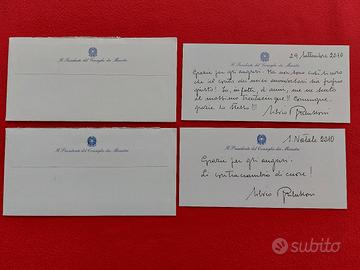 Il Presidente del Consiglio dei Ministri
29 Settembre 2010
Il Presidente del Consiglio dei Ministri
Grazie per gli auguri. Ma non sono così sicuro
che il conto dei miei anniversari sia proprio
giusto! Io, infatti, d'anni, me ne sento
al massimo trentacinque!! Comunque,
grazie lo stesso!!!
Silvio Berlusconi
Il Presidente del Consiglio dei Ministri
1 Natale 2010
Il Presidente del Consiglio dei Ministri
Grazie per gli auguri.
Li contraccambio di cuore!
Silvio Berlusconi
subito